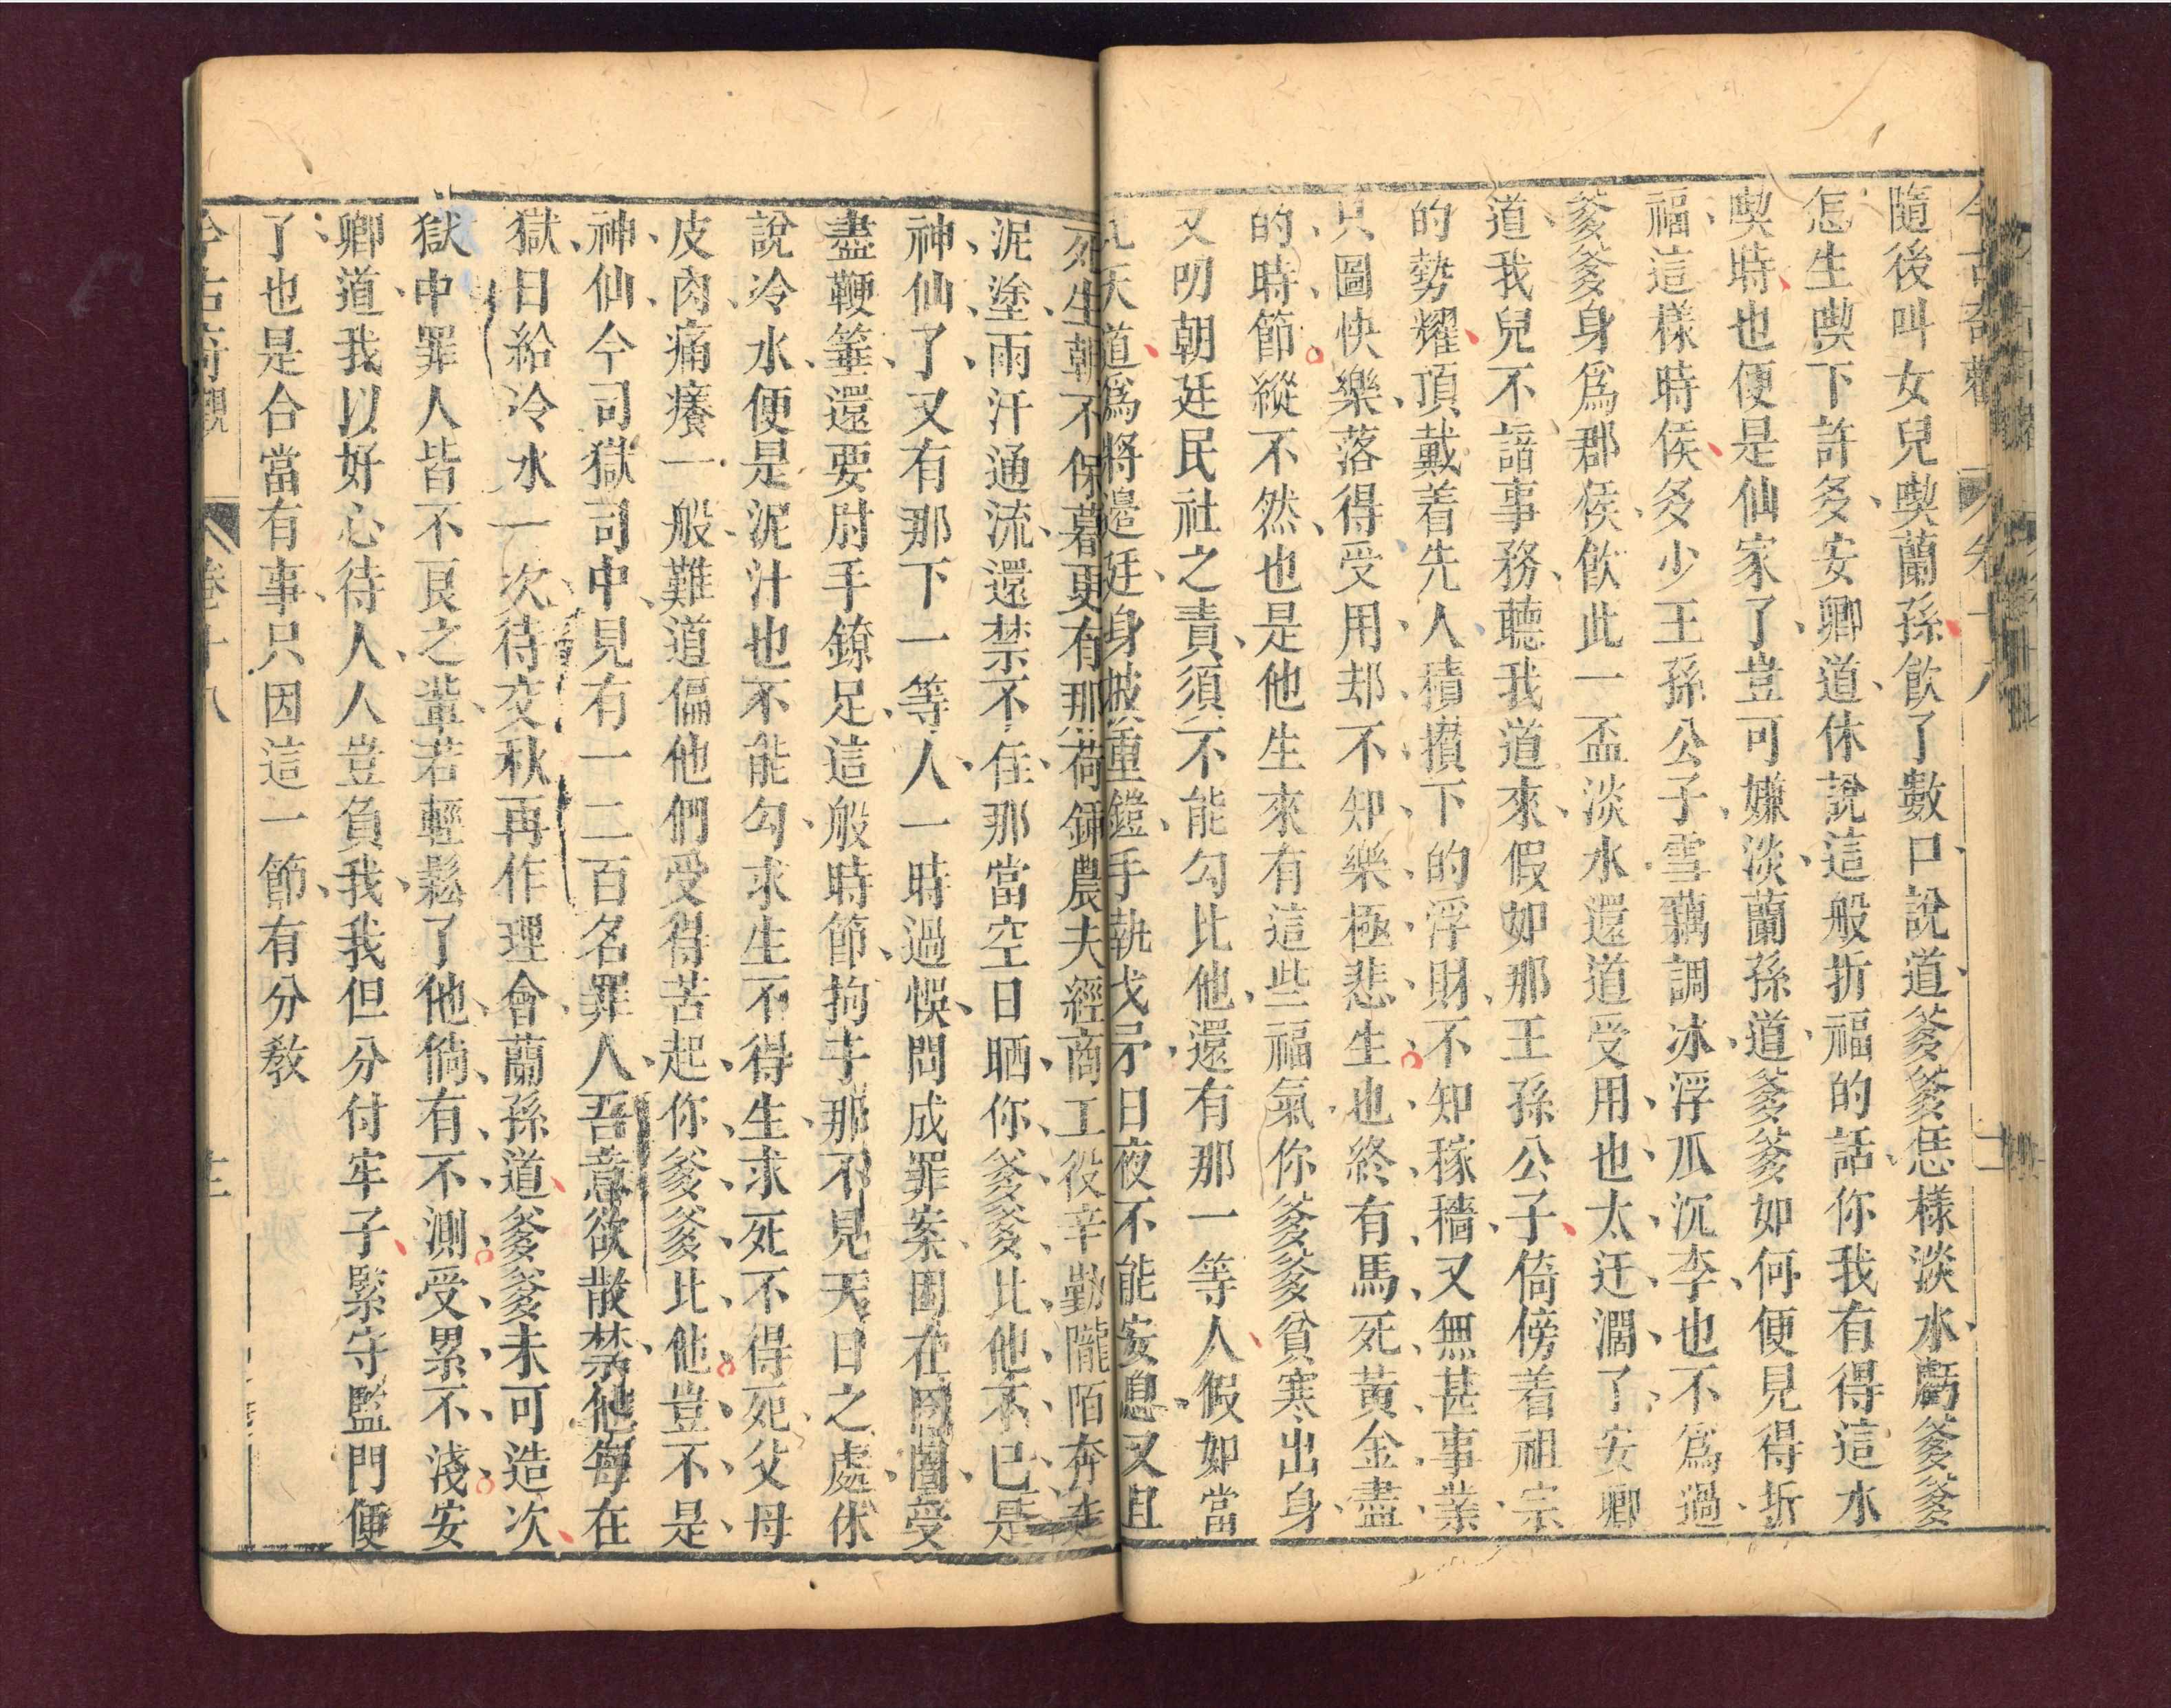 今古奇觀 卷十八
隨後叫女兒喫蘭孫飲了數口說道爹爹恁樣淡水虧爹爹
怎生喫下許多安卿道休說這般折福的話你我有得這水
喫時也便是仙家了豈可嫌淡蘭孫道爹爹如何便見得折
福這樣時候多少王孫公子雪藕調冰浮瓜沉李也不爲過
爹爹身爲郡侯飲此一盃淡水還道受用也太迂濶了安卿
道我兒不諳事務聽我道來假如那王孫公子倚傍着祖宗
的勢耀頂戴着先人積攢下的浮財不知稼穡又無甚事業
只圖快樂落得受用却不知樂極悲生也終有馬死黃金盡
的時節縱不然也是他生來有這些福氣你爹爹貧寒出身
又叨朝廷民社之責須不能勾比他還有那一等人假如當
此天道爲將邊廷身披重鎧手執戈矛日夜不能安息又且
死生朝不保暮更有那荷鍤農夫經商工役辛勤隴陌奔走
泥塗雨汗通流還禁不住那當空日晒你爹爹比他不已是
神仙了又有那下一等人一時過悞問成罪案困在囹圄受
盡鞭箠還要肘手鐐足這般時節拘于那不見天日之處休
說冷水便是泥汁也不能勾求生不得生求死不得死父母
皮肉痛癢一般難道偏他們受得苦起你爹爹比他豈不是
神仙今司獄司中見有一二百名罪人吾意欲散禁他每在
獄日給冷水一次待交秋再作理會蘭孫道爹爹未可造次
獄中罪人皆不良之輩若輕鬆了他倘有不測受累不淺安
卿道我以好心待人人豈負我我但分付牢子緊守監門便
了也是合當有事只因這一節有分教
今古奇觀 卷十八